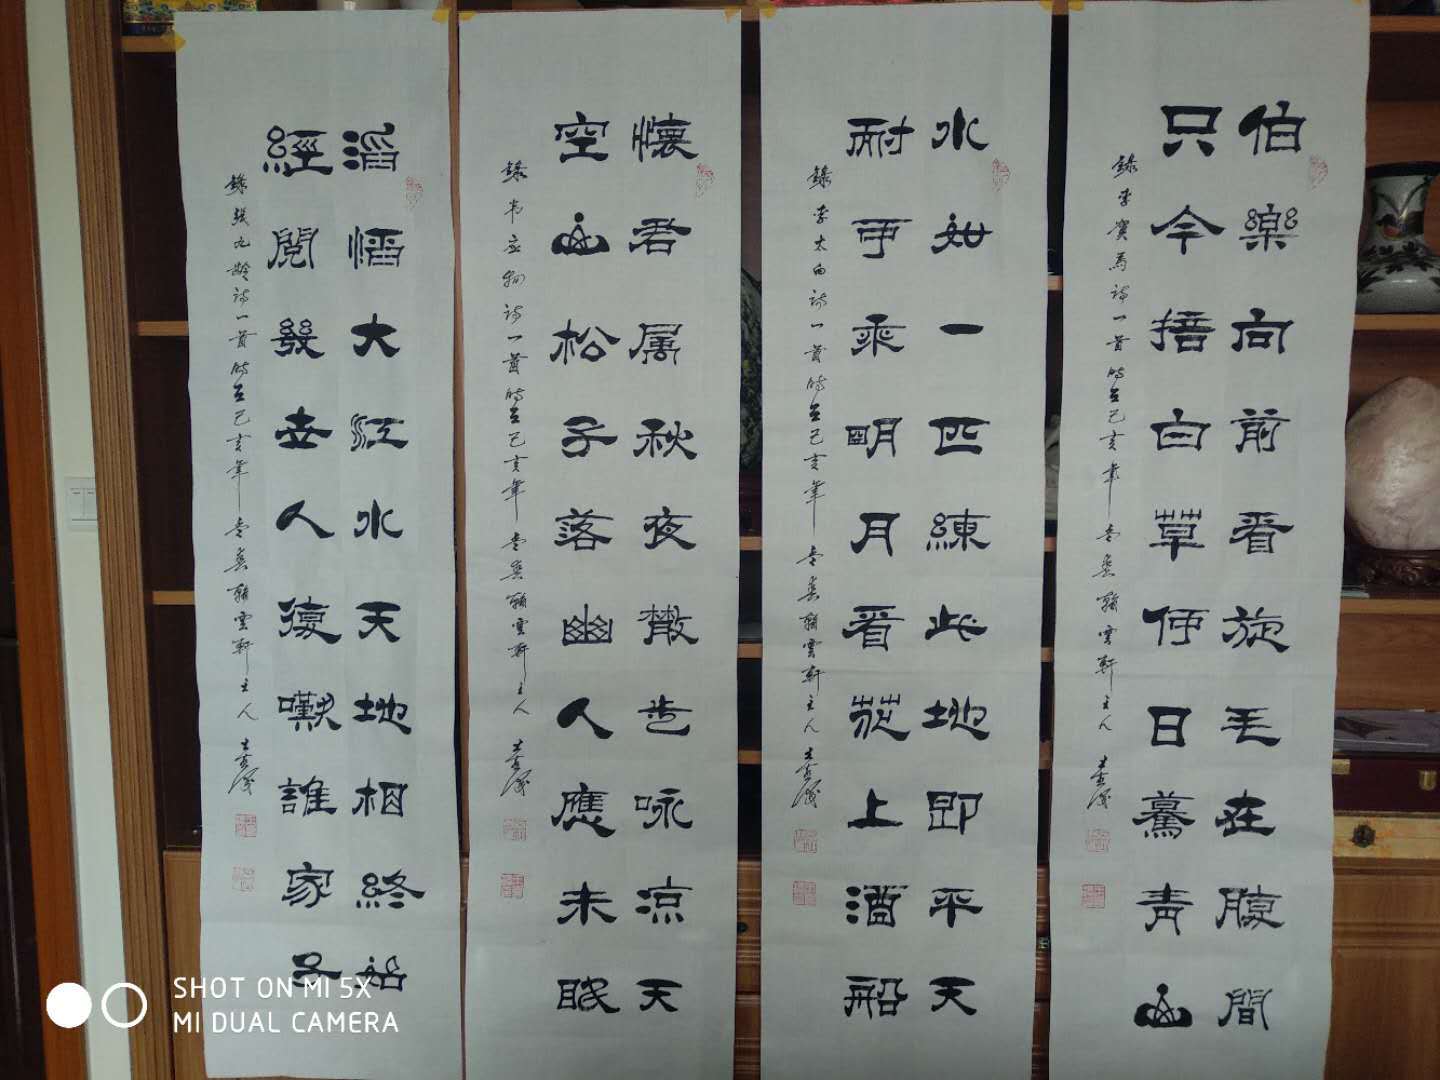 伯樂向前看旋毛在腹間
只今掊白草何日驀青山
錄李賀馬詩一首時在己亥年 翰雲軒主人
水如一匹練此地即平天
耐可乘明月看花上酒船
錄李太白詩一首時在己亥年 翰雲軒主人
懷君属秋夜散步咏凉天
空山松子落幽人應未眠
錄韦应物詩一首時在己亥年 翰雲軒主人
滔滔大江水天地相終始
經閱幾世人復嘆誰家子
錄張九齡詩一首時在己亥年 翰雲軒主人
SHOT ON MI 5X
MI DUAL CAMERA